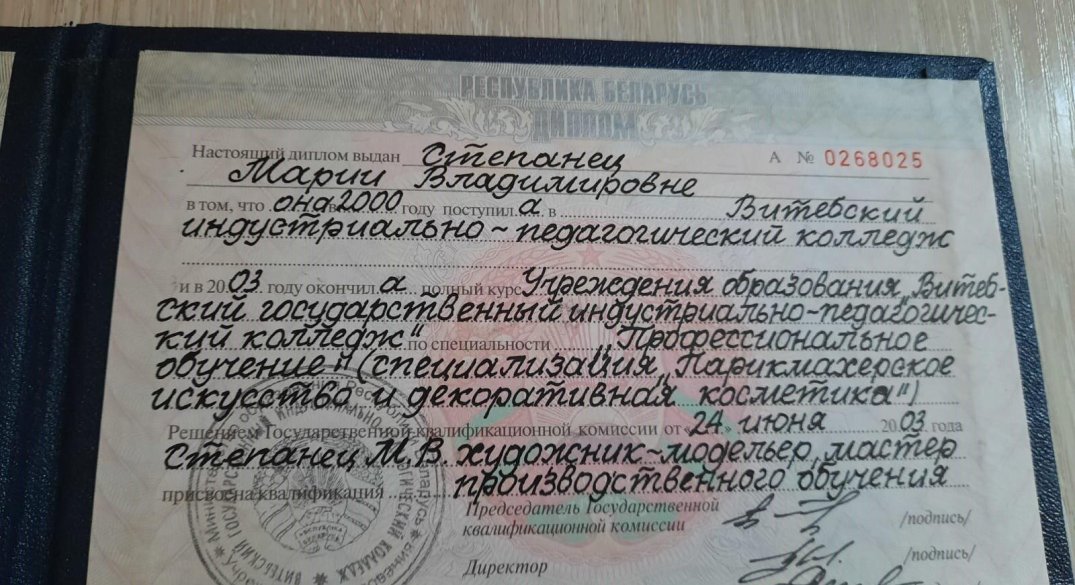 РЕСПУБЛИКА БЕЛАРУСЬ
ДИПЛОМ
Настоящий диплом выдан Степанец А № 0268025
Марии Владимировне
в том, что она 2000 году поступил а в Витебский
индустриально-педагогический колледж
и в 20 03 году окончил а полный курс Учреждения образования „Витеб-
ский государственный индустриально-педагогичес-
кий колледж" по специальности „Профессиональное
обучение" (специализация „Парикмахерское
искусство и декоративная косметика")
Решением Государственной квалификационной комиссии от « 24 » июня 20 03 года
Степанец М.В. художник-модельер, мастер
присвоена квалификация производственного обучения
Председатель Государственной
квалификационной комиссии /подпись/
Директор /подпись/